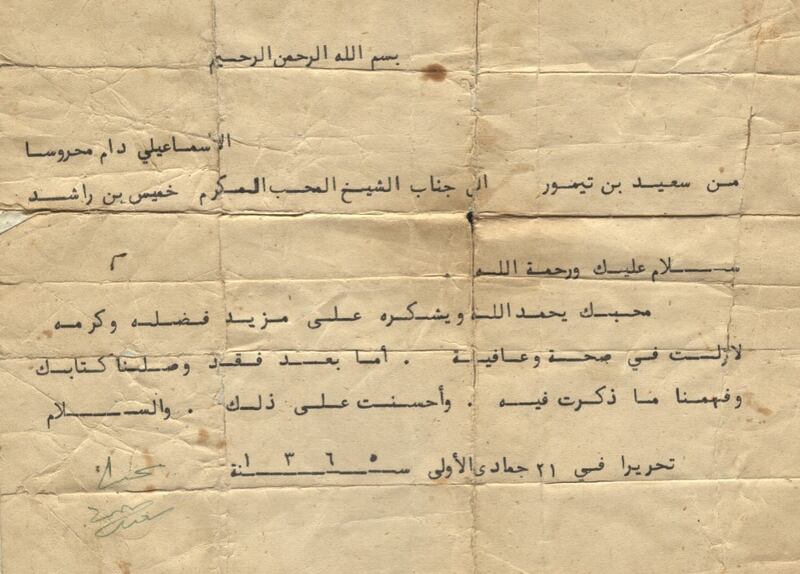 بسم الله الرحمن الرحيم
من سعيد بن تيمور الى جناب الشيخ المحب المكرم خميس بن راشد
الأسماعيلي دام محروسا
سلام عليك ورحمة الله .
محبك يحمد الله ويشكره على مزيد فضله وكرمه
لازلت في صحة وعافية . أما بعد فقد وصلنا كتابك
وفهمنا ما ذكرت فيه . وأحسنت على ذلك . والسلام
تحريرا في ٢١ جمادى الأولى سنة ١٣٦٥
سعيد